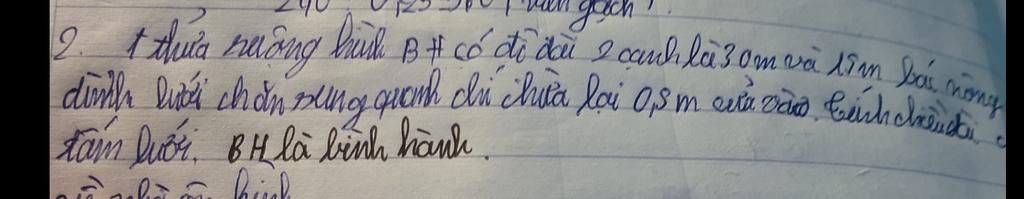 240 : 0,25 = 960 ( viên gạch ) .
2. 1 thửa ruộng hình BH có độ dài 2 cạnh là 30m và 15m bác nông
dình lưới chắn xung quanh chỉ chừa lại 0,5m cửa vào. tính chiều dài
tấm lưới. BH là bình hành.